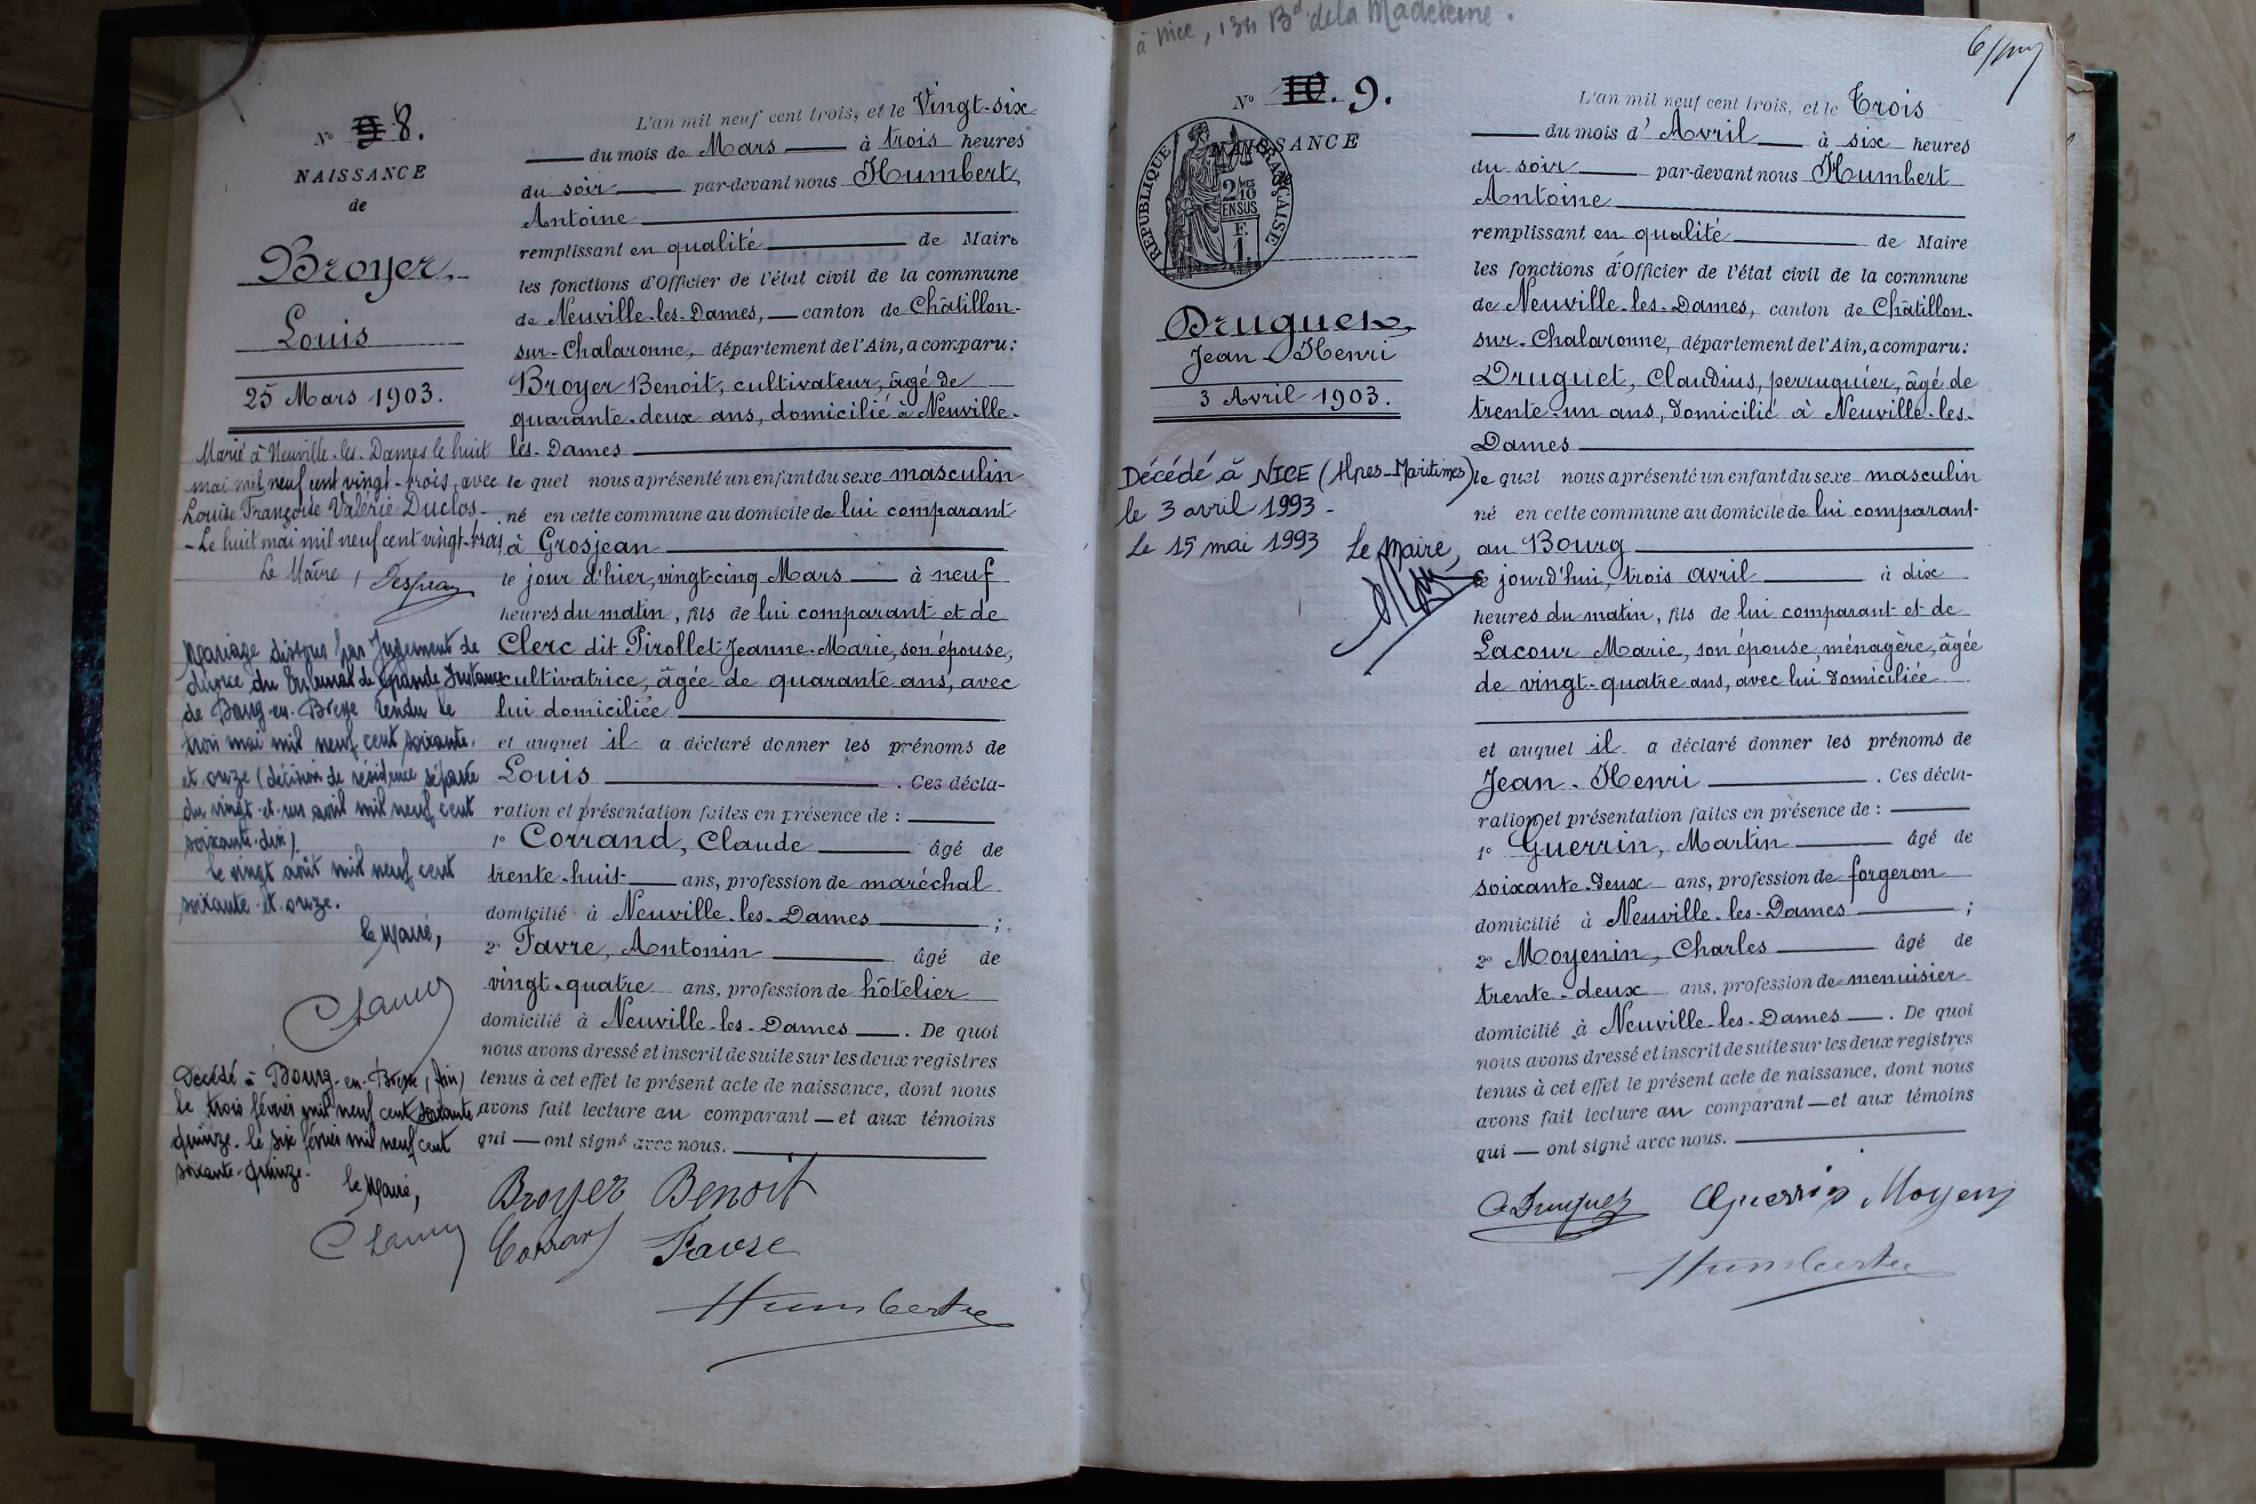 N° 9 8.
NAISSANCE
de
Broyer,
Louis
25 Mars 1903.
Marié à Neuville-les-Dames le huit
mai mil neuf cent vingt-trois, avec
Louise Françoise Valérie Duclos-
-Le huit mai mil neuf cent vingt-trois
Le Maire,
Mariage dissous par Jugement de
divorce du Tribunal de Grande Instance
de Bourg-en-Bresse rendu le
trois mai mil neuf cent soixante-
et onze (décision de résidence séparée
du vingt-et-un avril mil neuf cent
soixante-dix).
le vingt août mil neuf cent
soixante-et-onze.
le Maire,
Décédé à Bourg-en-Bresse (Ain)
le trois février mil neuf cent soixante
quinze. le six février mil neuf cent
soixante-quinze.
le Maire,
L'an mil neuf cent trois, et le Vingt-six
du mois de Mars à trois heures
du soir par-devant nous Humbert,
Antoine
remplissant en qualité de Maire
les fonctions d'Officier de l'état civil de la commune
de Neuville-les-Dames, canton de Châtillon-
sur-Chalaronne, département de l'Ain, a comparu:
Broyer Benoit, cultivateur, âgé de
quarante-deux ans, domicilié à Neuville-
les-Dames
le quel nous a présenté un enfant du sexe masculin
né en cette commune au domicile de lui comparant
à Grosjean
le jour d'hier, vingt-cinq Mars à neuf
heures du matin, fils de lui comparant et de
Clerc dit Pirollet Jeanne-Marie, son épouse,
cultivatrice, âgée de quarante ans, avec
lui domiciliée
et auquel il a déclaré donner les prénoms de
Louis . Ces décla-
ration et présentation faites en présence de :
1° Corrand, Claude âgé de
trente-huit ans, profession de maréchal
domicilié à Neuville-les-Dames ;
2° Favre, Antonin âgé de
vingt-quatre ans, profession de hôtelier
domicilié à Neuville-les-Dames . De quoi
nous avons dressé et inscrit de suite sur les deux registres
tenus à cet effet le présent acte de naissance, dont nous
avons fait lecture au comparant — et aux témoins
qui — ont signé avec nous.
Broyer Benoit
Corrand Favre
Humbert
à Nice, 134 Bd de la Madeleine.
N° 10. 9.
NAISSANCE
RÉPUBLIQUE FRANÇAISE
2 MES
10
EN SUS
F.
1.
Druguet,
Jean-Henri
3 Avril 1903.
Décédé à NICE (Alpes-Maritimes)
le 3 avril 1993 -
le 15 mai 1993 Le Maire,
L'an mil neuf cent trois, et le Trois
du mois d'Avril à six heures
du soir par-devant nous Humbert
Antoine
remplissant en qualité de Maire
les fonctions d'Officier de l'état civil de la commune
de Neuville-les-Dames, canton de Châtillon-
sur-Chalaronne, département de l'Ain, a comparu:
Druguet, Claudius, perruquier, âgé de
trente-un ans, domicilié à Neuville-les-
Dames
le quel nous a présenté un enfant du sexe masculin
né en cette commune au domicile de lui comparant
au Bourg
ce jourd'hui, trois avril à dix
heures du matin, fils de lui comparant et de
Lacour Marie, son épouse, ménagère, âgée
de vingt-quatre ans, avec lui domiciliée
et auquel il a déclaré donner les prénoms de
Jean-Henri . Ces décla-
ration et présentation faites en présence de :
1° Guerrin, Martin âgé de
soixante-deux ans, profession de forgeron
domicilié à Neuville-les-Dames ;
2° Moyenin, Charles âgé de
trente-deux ans, profession de menuisier
domicilié à Neuville-les-Dames . De quoi
nous avons dressé et inscrit de suite sur les deux registres
tenus à cet effet le présent acte de naissance, dont nous
avons fait lecture au comparant — et aux témoins
qui — ont signé avec nous.
C Druguet Guerrin Moyenin
Humbert